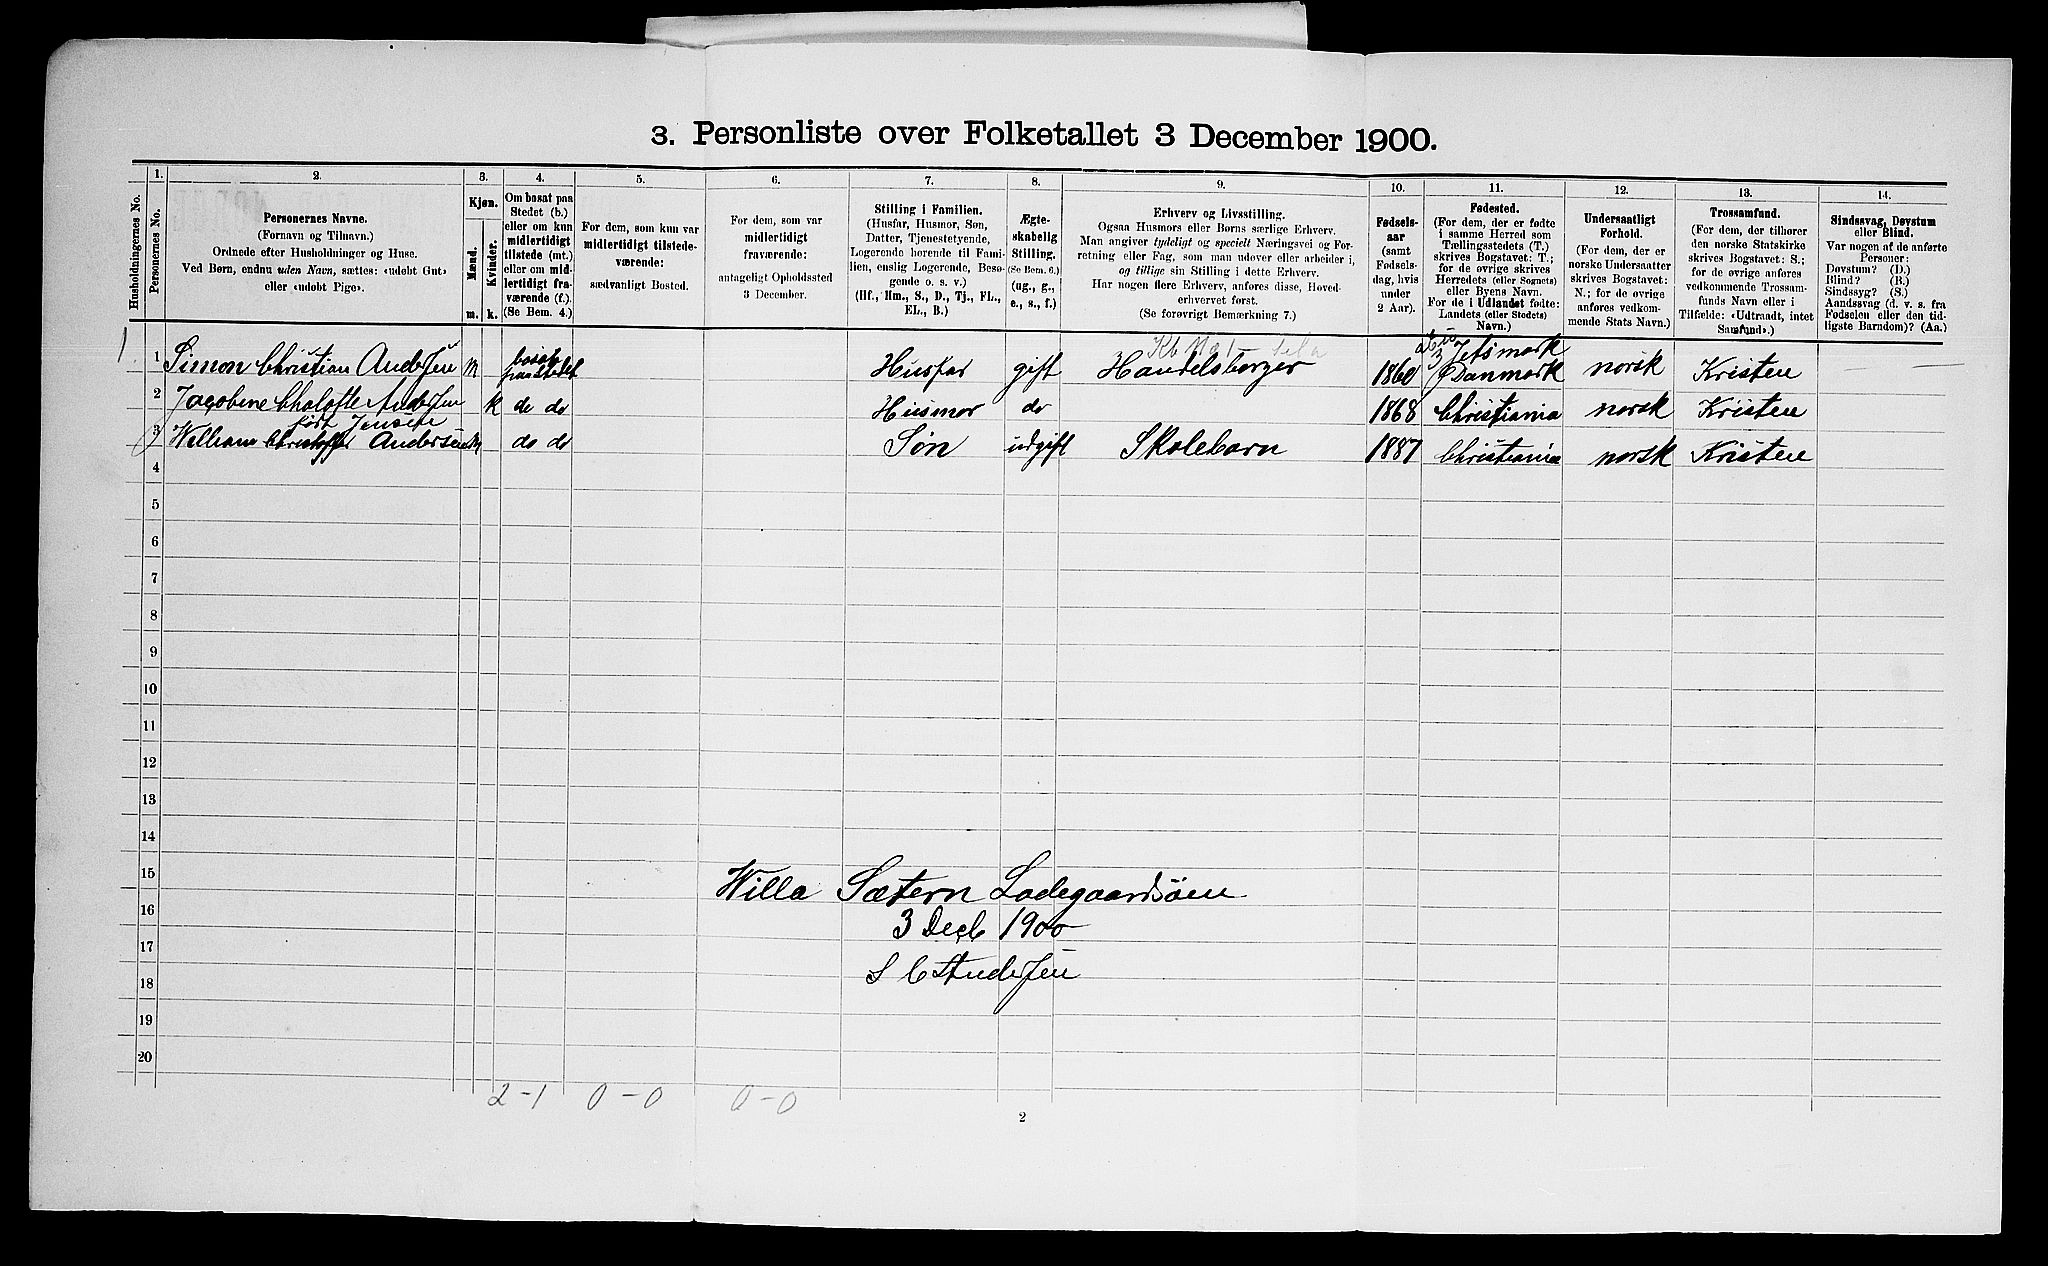 3. Personliste over Folketallet 3 December 1900.
Husholdningernes No.
1. Personernes No.
2. Personernes Navne.
(Fornavn og Tilnavn.)
Ordnede efter Husholdninger og Huse.
Ved Børn, endnu uden Navn, sættes: «udøbt Gut»
eller «udøbt Pige».
3. Kjøn.
Mænd. m.
Kvinder. k.
4. Om bosat paa
Stedet (b.)
eller om kun
midlertidigt
tilstede (mt.)
eller om mid-
lertidigt fra-
værende (f.).
(Se Bem. 4.)
5. For dem, som kun var
midlertidigt tilstede-
værende:
sædvanligt Bosted.
6. For dem, som var
midlertidigt
fraværende:
antageligt Opholdssted
3 December.
7. Stilling i Familien.
(Husfar, Husmor, Søn,
Datter, Tjenestetyende,
Logerende hørende til Fami-
lien, enslig Logerende, Besø-
gende o. s. v.)
(Hf., Hm., S., D., Tj., FL.,
EL., B.)
8. Ægte-
skabelig
Stilling.
(Se Bem. 6.)
(ug., g.,
e., s., f.)
9. Erhverv og Livsstilling.
Ogsaa Husmors eller Børns særlige Erhverv.
Man angiver tydeligt og specielt Næringsvei og For-
retning eller Fag, som man udøver eller arbeider i,
og tillige sin Stilling i dette Erhverv.
Har nogen flere Erhverv, anføres disse, Hoved-
erhvervet først.
(Se forøvrigt Bemærkning 7.)
10. Fødsels-
aar
(samt
Fødsels-
dag, hvis
under
2 Aar).
11. Fødested.
(For dem, der er fødte
i samme Herred som
Tællingsstedets (T.)
skrives Bogstavet: T.;
for de øvrige skrives
Herredets (eller Sognets)
eller Byens Navn.
For de i Udlandet fødte:
Landets (eller Stedets)
Navn.)
12. Undersaatligt
Forhold.
(For dem, der er
norske Undersaatter
skrives Bogstavet:
N.; for de øvrige
anføres vedkom-
mende Stats Navn.)
13. Trossamfund.
(For dem, der tilhører
den norske Statskirke
skrives Bogstavet: S.;
for de øvrige anføres
vedkommende Trossam-
funds Navn eller i
Tilfælde: «Udtraadt, intet
Samfund».)
14. Sindssvag, Døvstum
eller Blind.
Var nogen af de anførte
Personer:
Døvstum? (D.)
Blind? (B.)
Sindssyg? (S.)
Aandssvag (d. v. s. fra
Fødselen eller den tid-
ligste Barndom)? (Aa.)
1 1 Simon Christian Andersen m bosat paa Stedet Husfar gift Handelsborger 1860 Jetsmark Danmark norsk Kristen
2 Jacobine Andersen k do do Husmor do 1868 Christiania norsk Kristen
født Jensen
3 William Christoffer Andersen m do do Søn udgift Skolebarn 1887 Christiania norsk Kristen
4
5
6
7
8
9
10
11
12
13
14
15 Willa Sætern Ladegaardsøen
16 3 Decb 1900
17
18 S C Andersen
19
20
2-1 0-0 0-0
2